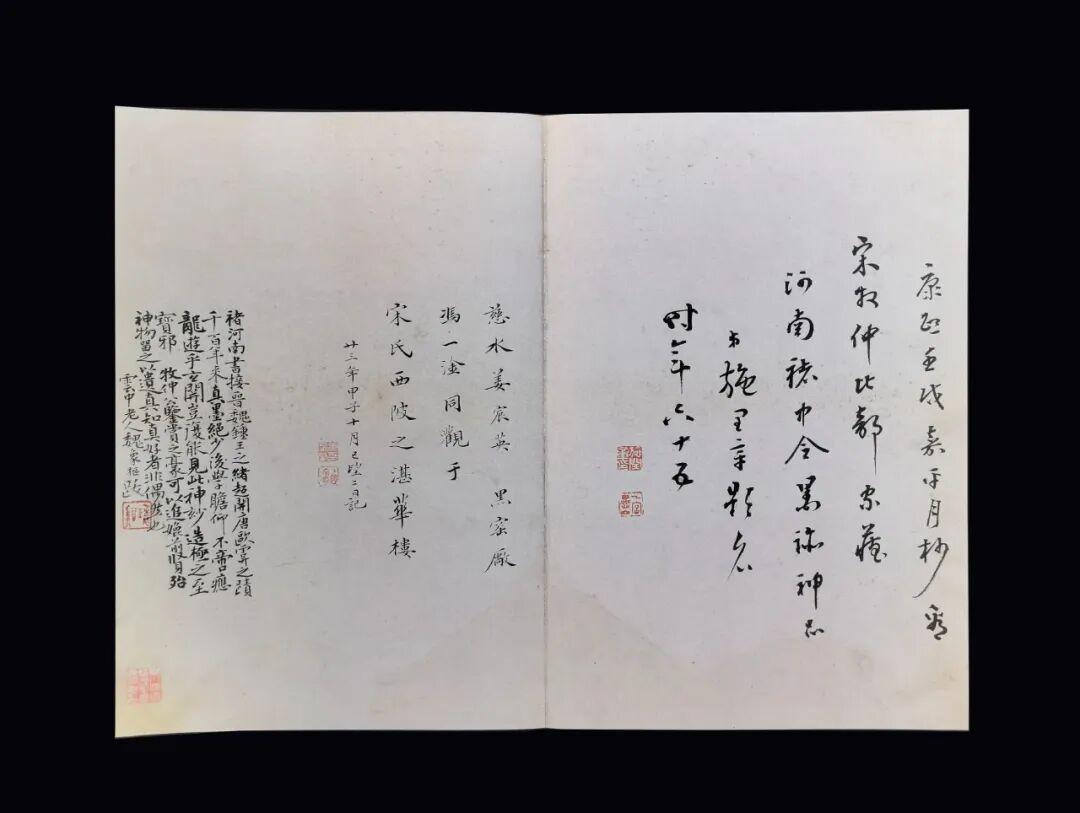 康熙壬戌嘉平月杪觀
宋牧仲比部家藏
河南褚中令墨跡神品
弟施閏章題名
時年六十五
慈水姜宸英 黑窑廠
馮一淦同觀于
宋氏西陂之湛華樓
廿三年甲子十月已望二日記
褚河南書接晉魏鍾王之緒起開唐歐之蹟
千百年來真墨絕少後學瞻仰不啻應
龍遊乎玄閒豈復能見此神妙造極之至
寶邪 牧仲公鑒賞之豪可以進前殆
神物留之以遺真知真好者非偶然也
雲中老人魏象樞跋